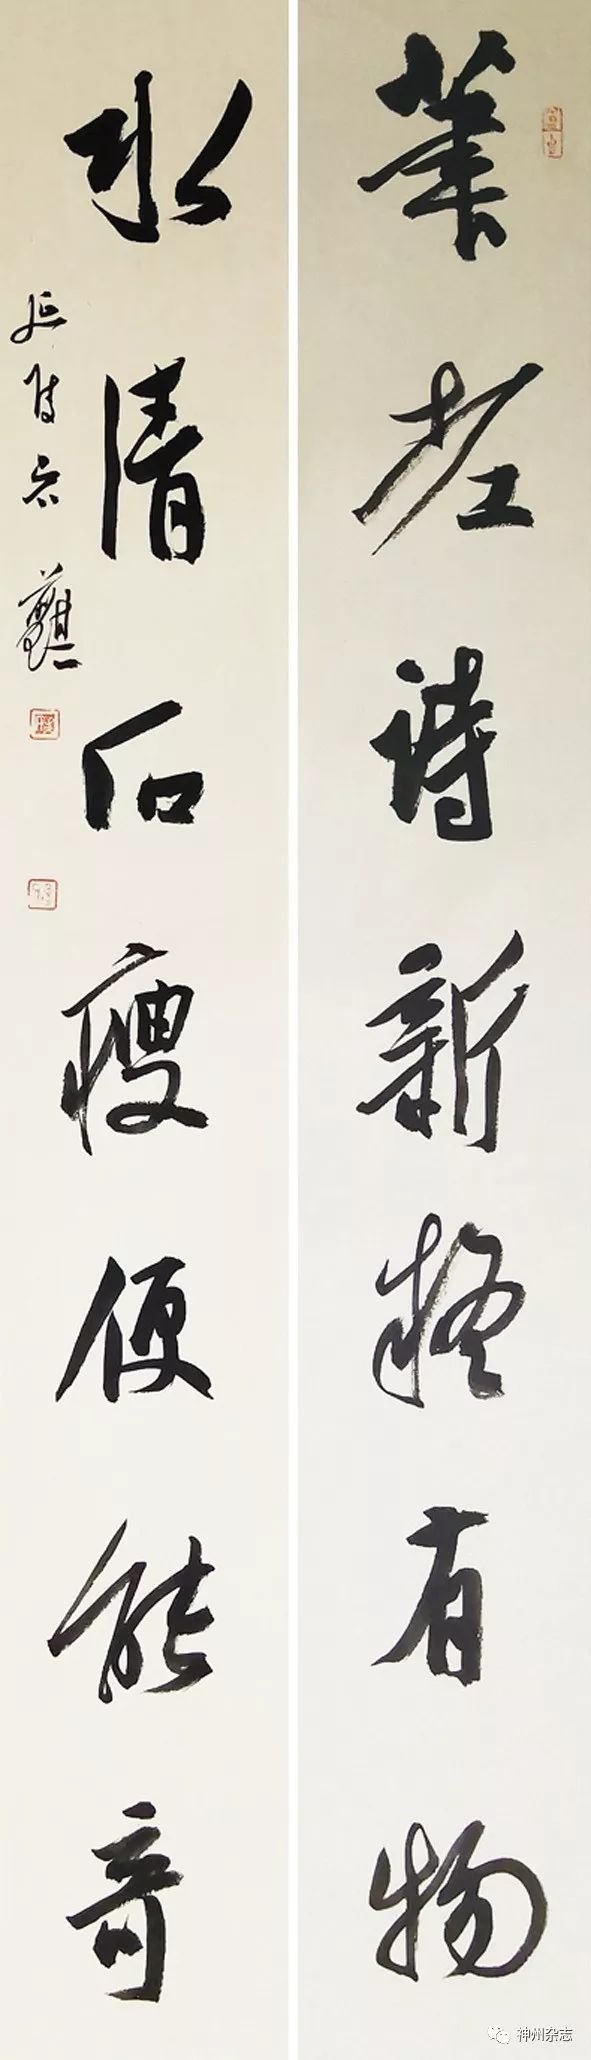 筆老詩新疑有物
水清石瘦便能奇
延陵
神州杂志